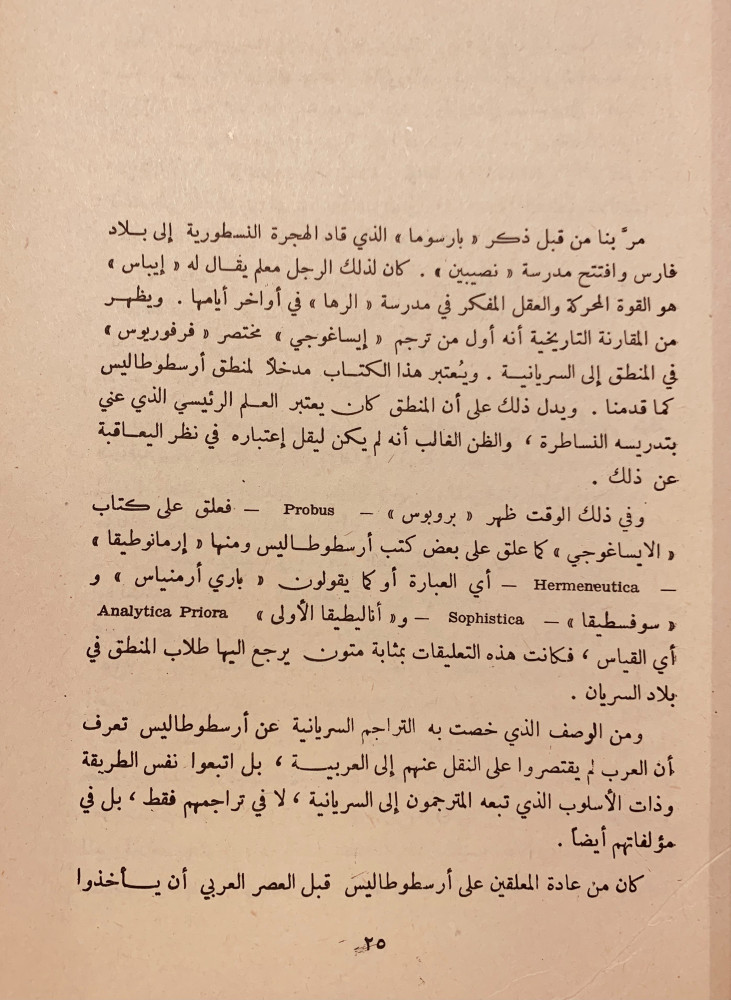 مرَّ بنا من قبل ذكر « بارسوما » الذي قاد الهجرة النسطورية إلى بلاد
فارس وافتتح مدرسة « نصيبين » . كان لذلك الرجل معلم يقال له « إيباس »
هو القوة المحركة والعقل المفكر في مدرسة « الرها » في أواخر أيامها . ويظهر
من المقارنة التاريخية أنه أول من ترجم « إيساغوجي » مختصر « فرفوريوس »
في المنطق إلى السريانية . ويُعتبر هذا الكتاب مدخلاً لمنطق أرسطوطاليس
كما قدمنا . ويدل ذلك على أن المنطق كان يعتبر العلم الرئيسي الذي عني
بتدريسه النساطرة ، والظن الغالب أنه لم يكن ليقل إعتباره في نظر اليعاقبة
عن ذلك .
وفي ذلك الوقت ظهر « بروبوس » — Probus — فعلق على كتاب
« الايساغوجي » كما علق على بعض كتب أرسطوطاليس ومنها « إرمانوطيقا »
— Hermeneutica — أي العبارة أو كما يقولون « باري أرمنياس » و
« سوفسطيقا » — Sophistica — و« أناليطيقا الأولى » Analytica Priora
أي القياس ، فكانت هذه التعليقات بمثابة متون يرجع اليها طلاب المنطق في
بلاد السريان .
ومن الوصف الذي خصت به التراجم السريانية عن أرسطوطاليس تعرف
أن العرب لم يقتصروا على النقل عنهم إلى العربية ، بل اتبعوا نفس الطريقة
وذات الأسلوب الذي تبعه المترجمون إلى السريانية ، لا في تراجمهم فقط ، بل في
مؤلفاتهم أيضاً .
كان من عادة المعلقين على أرسطوطاليس قبل العصر العربي أن يأخذوا
٢٥